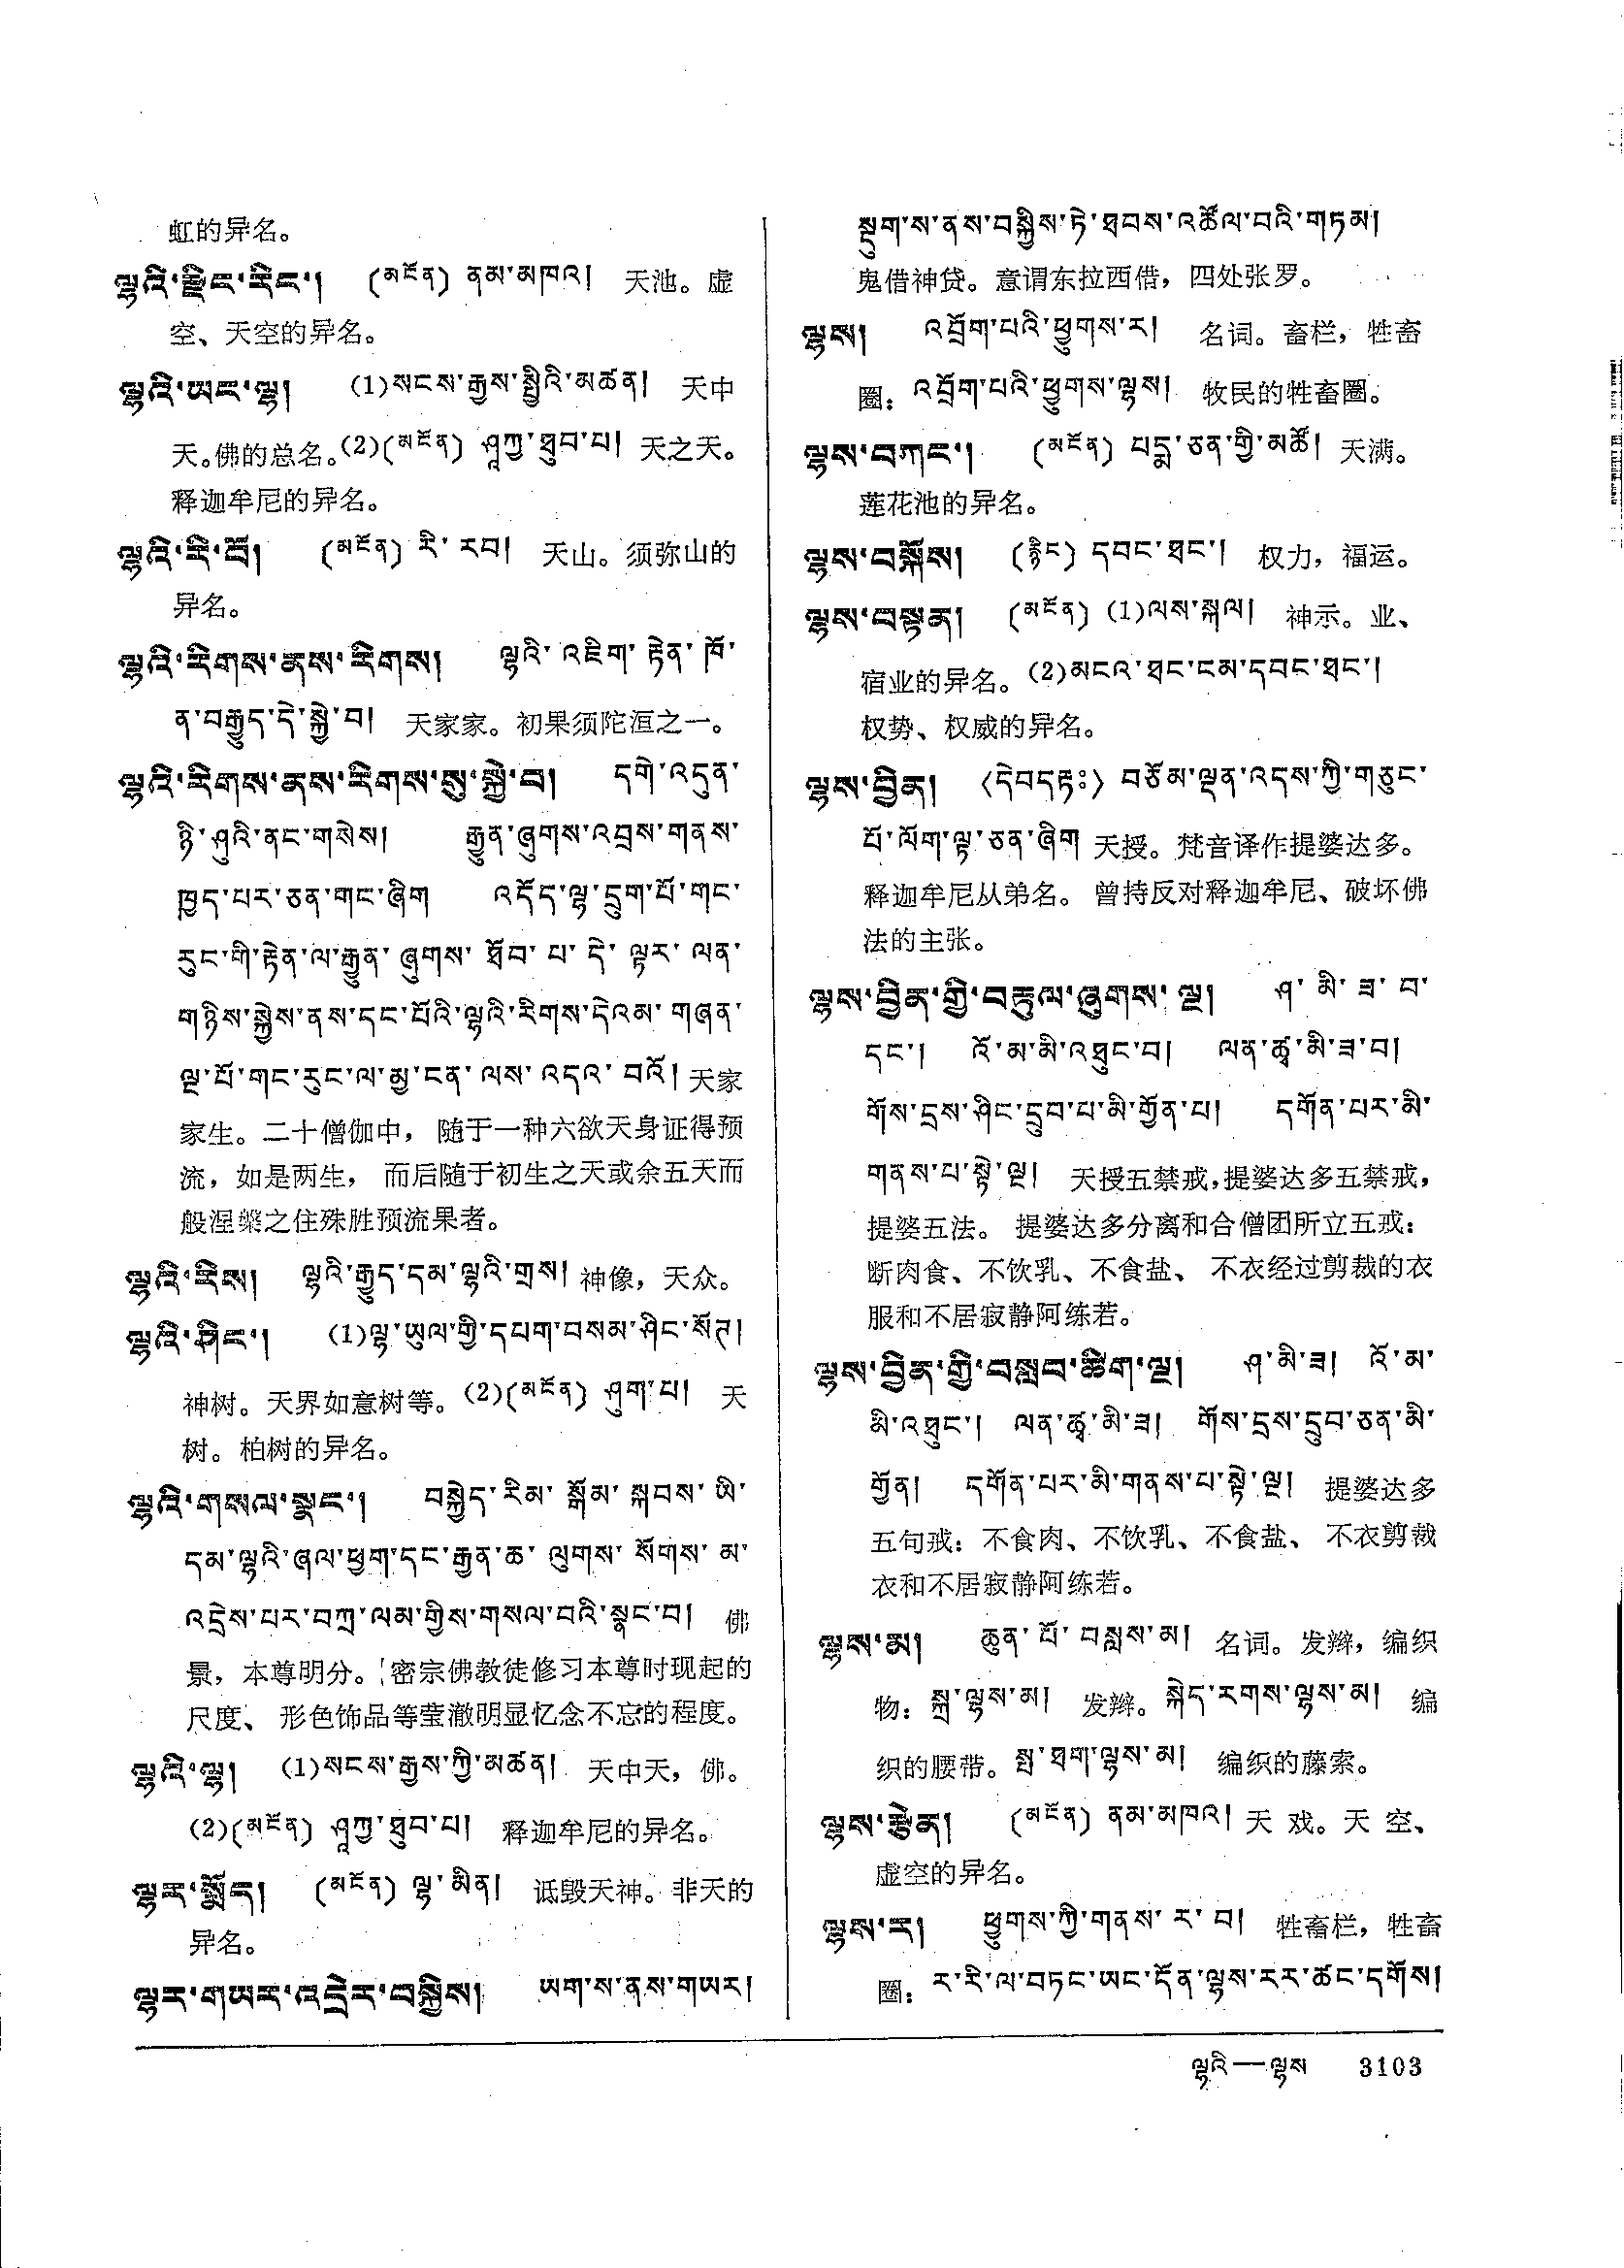 虹的异名。
ལྷའི་རྫིང་རིང་། (མངོན) ནམ་མཁའ། 天池。虚
空、天空的异名。
ལྷའི་ཡང་ལྷ། (1)སངས་རྒྱས་སྤྱིའི་མཚན། 天中
天。佛的总名。(2)(མངོན) ཤཱཀྱ་ཐུབ་པ། 天之天。
释迦牟尼的异名。
ལྷའི་རི་བོ། (མངོན) རི་རབ། 天山。须弥山的
异名。
ལྷའི་རིགས་ནས་རིགས། ལྷའི་འཇིག་རྟེན་ཁོ་
ན་བརྒྱུད་དེ་སྐྱེ་བ། 天家家。初果须陀洹之一。
ལྷའི་རིགས་ནས་རིགས་སུ་སྐྱེ་བ། དགེ་འདུན་
ཉི་ཤུའི་ནང་གསེས། རྒྱུན་ཞུགས་འབྲས་གནས་
ཁྱད་པར་ཅན་གང་ཞིག འདོད་ལྷ་དྲུག་པོ་གང་
རུང་གི་རྟེན་ལ་རྒྱུན་ཞུགས་ཐོབ་པ་དེ་ལྟར་ལན་
གཉིས་སྐྱེས་ནས་དང་པོའི་ལྷའི་རིགས་དེའམ་གཞན་
ལྔ་པོ་གང་རུང་ལ་མྱ་ངན་ལས་འདའ་བའོ། 天家
家生。二十僧伽中，随于一种六欲天身证得预
流，如是两生，而后随于初生之天或余五天而
般涅槃之住殊胜预流果者。
ལྷའི་རིས། ལྷའི་རྒྱུད་དམ་ལྷའི་གྲས། 神像，天众。
ལྷའི་ཤིང་། (1)ལྷ་ཡུལ་གྱི་དཔག་བསམ་ཤིང་སོཊ།
神树。天界如意树等。(2)(མངོན) ཤུག་པ། 天
树。柏树的异名。
ལྷའི་གསལ་སྣང་། བསྐྱེད་རིམ་སྒོམ་སྐབས་ཡི་
དམ་ལྷའི་ཞལ་ཕྱག་དང་རྒྱན་ཆ་ལུགས་སོགས་མ་
འདྲེས་པར་བཀྲ་ལམ་གྱིས་གསལ་བའི་སྣང་བ། 佛
景，本尊明分。密宗佛教徒修习本尊时现起的
尺度、形色饰品等莹澈明显忆念不忘的程度。
ལྷའི་ལྷ། (1)སངས་རྒྱས་ཀྱི་མཚན། 天中天，佛。
(2)(མངོན) ཤཱཀྱ་ཐུབ་པ། 释迦牟尼的异名。
ལྷར་སྨོད། (མངོན) ལྷ་མིན། 诋毁天神。非天的
异名。
ལྷར་གཡར་འདྲེར་བསྐྱིས། ཡག་ས་ནས་གཡར།
སྡུག་ས་ནས་བསྐྱིས་ཏེ་ཐབས་འཚོལ་བའི་གཏམ།
鬼借神贷。意谓东拉西借，四处张罗。
ལྷས། འབྲོག་པའི་ཕྱུགས་ར། 名词。畜栏，牲畜
圈：འབྲོག་པའི་ཕྱུགས་ལྷས། 牧民的牲畜圈。
ལྷས་བཀང་། (མངོན) པདྨ་ཅན་གྱི་མཚོ། 天满。
莲花池的异名。
ལྷས་བསྐོས། (རྙིང) དབང་ཐང་། 权力，福运。
ལྷས་བསྟན། (མངོན) (1)ལས་སྐལ། 神示。业、
宿业的异名。(2)མངའ་ཐང་ངམ་དབང་ཐང་།
权势、权威的异名。
ལྷས་བྱིན། 〈དེབདཏྟཿ〉 བཅོམ་ལྡན་འདས་ཀྱི་གཅུང་
པོ་ལོག་ལྟ་ཅན་ཞིག 天授。梵音译作提婆达多。
释迦牟尼从弟名。曾持反对释迦牟尼、破坏佛
法的主张。
ལྷས་བྱིན་གྱི་བརྟུལ་ཞུགས་ལྔ། ཤ་མི་ཟ་བ་
དང་། འོ་མ་མི་འཐུང་བ། ལན་ཚྭ་མི་ཟ་བ།
གོས་དྲས་ཤིང་དྲུབ་པ་མི་གྱོན་པ། དགོན་པར་མི་
གནས་པ་སྟེ་ལྔ། 天授五禁戒，提婆达多五禁戒，
提婆五法。提婆达多分离和合僧团所立五戒：
断肉食、不饮乳、不食盐、不衣经过剪裁的衣
服和不居寂静阿练若。
ལྷས་བྱིན་གྱི་བསླབ་ཚིག་ལྔ། ཤ་མི་ཟ། འོ་མ་
མི་འཐུང་། ལན་ཚྭ་མི་ཟ། གོས་དྲས་དྲུབ་ཅན་མི་
གྱོན། དགོན་པར་མི་གནས་པ་སྟེ་ལྔ། 提婆达多
五句戒：不食肉、不饮乳、不食盐、不衣剪裁
衣和不居寂静阿练若。
ལྷས་མ། ཆུན་པོ་བསླས་མ། 名词。发辫，编织
物：སྐྲ་ལྷས་མ། 发辫。སྐེད་རགས་ལྷས་མ། 编
织的腰带。སྤྲ་ཐག་ལྷས་མ། 编织的藤索。
ལྷས་རྩེན། (མངོན) ནམ་མཁའ། 天戏。天空、
虚空的异名。
ལྷས་ར། ཕྱུགས་ཀྱི་གནས་ར་བ། 牲畜栏，牲畜
圈：ར་རི་ལ་བཏང་ཡང་དོན་ལྷས་རར་ཚང་དགོས།
ལྷའི—ལྷས 3103